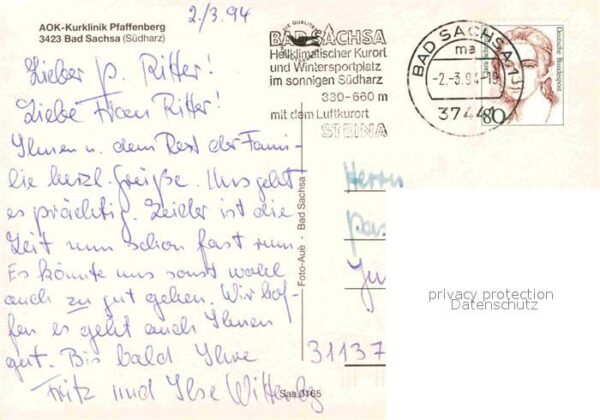 AOK-Kurklinik Pfaffenberg
3423 Bad Sachsa (Südharz)
2./3.94
Lieber P. Ritter!
Liebe Frau Ritter!
Ihnen u. dem Rest der Fami-
lie herzl. Grüße. Uns geht
es prächtig. Leider ist die
Zeit nun schon fast rum.
Es könnte uns sonst wohl
auch zu gut gehen. Wir hof-
fen es geht auch Ihnen
gut. Bis bald Ihre
Fritz und Ilse
BAD SACHSA
Heilklimatischer Kurort
und Wintersportplatz
im sonnigen Südharz
330-660 m
mit dem Luftkurort
STEINA
BAD SACHSA 1
ma
-2.-3.94-19
37441
Deutsche Bundespost
80
Foto-Aue · Bad Sachsa
Herrn
Pas
31137
Saa 0165
privacy protection
Datenschutz